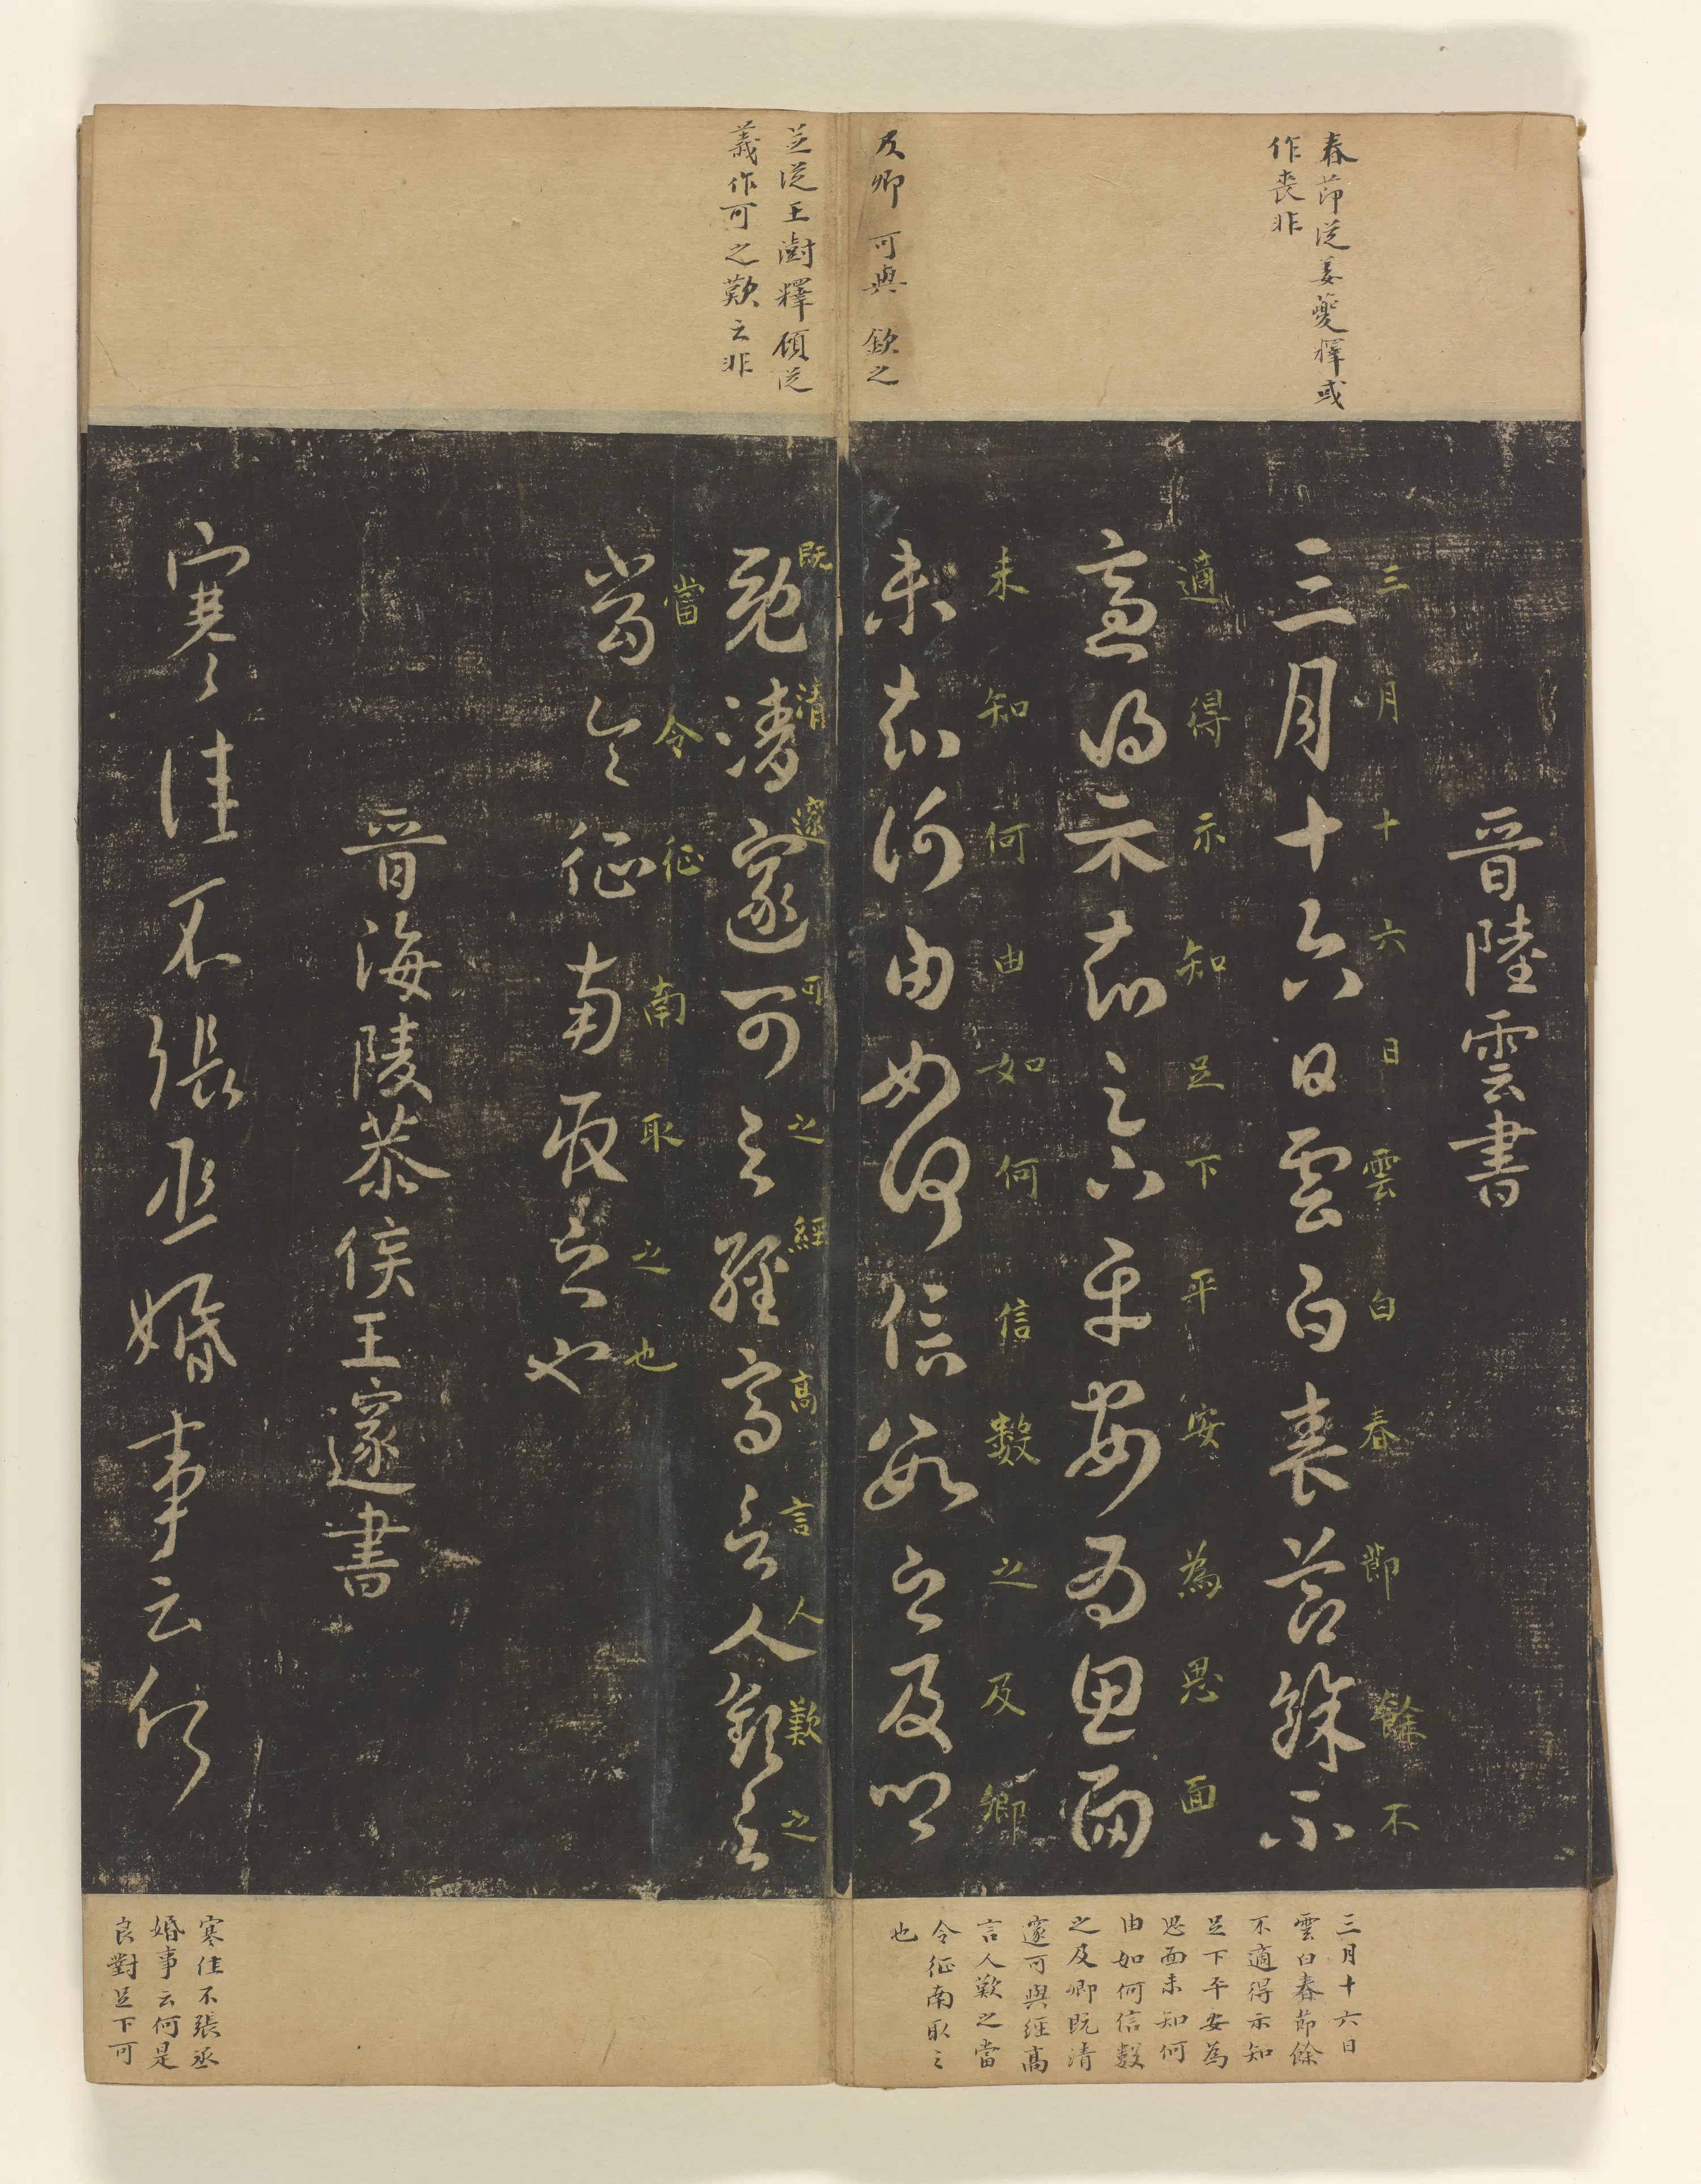 春節從姜夔釋或
作喪非
及卿 可與 欽之
並從王澍釋顧從
義作可之歎之非
晉陸雲書
三月十六日雲白春節餘不
三月十六日雲白春節餘不
適得示知足下平安為思面
適得示知足下平安為思面
未知何由如何信數之及卿
未知何由如何信數之及卿
既清邃可之經高言人歎之
既清邃可之經高言人歎之
當令征南取之也
當令征南取之也
晉海陵恭侯王邃書
寒〻佳不張丞婚事云何
三月十六日
雲白春節餘
不適得示知
足下平安為
思面未知何
由如何信數
之及卿既清
邃可與經高
言人歎之當
令征南取之
也
寒佳不張丞
婚事云何是
良對足下可